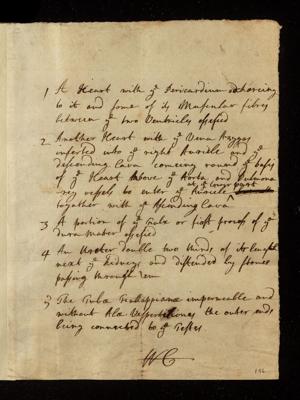 1 A Heart with yᵉ Pericardium adhering
to it and some of its Muscular fibres
between yᵉ two Ventricles ossified
2 Another Heart with yᵉ Vena Azygos
inserted into yᵉ right Auricle and yᵉ
descending Cava coming round yᵉ basis
of yᵉ Heart above yᵉ Aorta and Pulmona
ry vessels to enter yᵉ Auricle
at yᵉ lower part
together with yᵉ Ascending Cava
3 A portion of yᵉ Falx or first process of yᵉ
dura mater ossified
4 An Ureter double two thirds of its lenght
next yᵉ Kidney and distended by stones
passing through 'em
5 The Tubæ Fallopianæ impermeable and
without Alæ Vespertilionis the outer ends
being connected to yᵉ Testes
WC